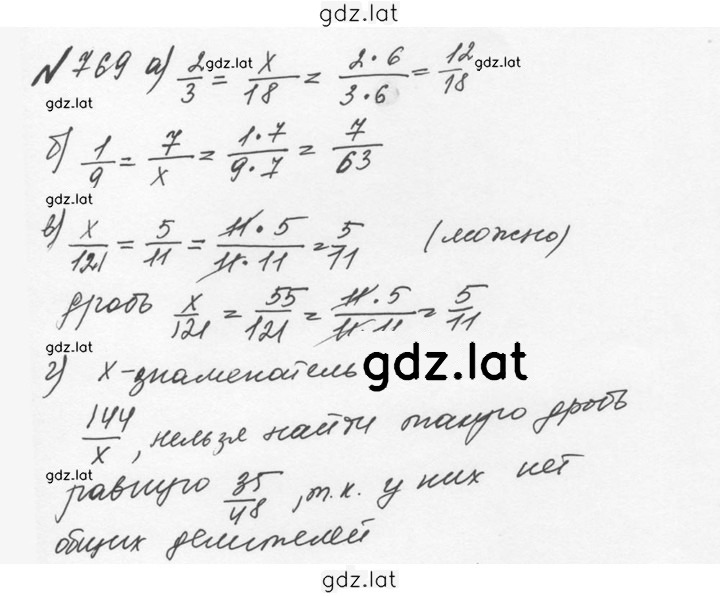 gdz.lat
№ 769 а) 2/3 = x/18 = 2·6/3·6 = 12/18
gdz.lat gdz.lat gdz.lat
б) 1/9 = 7/x = 1·7/9·7 = 7/63
gdz.lat
в) x/121 = 5/11 = 11·5/11·11 = 5/11 (можно)
дробь x/121 = 55/121 = 11·5/11·11 = 5/11
gdz.lat
г) x-знаменатель gdz.lat
144/x, нельзя найти такую дробь
gdz.lat
равную 35/48, т.к. у них нет
общих делителей
gdz.lat